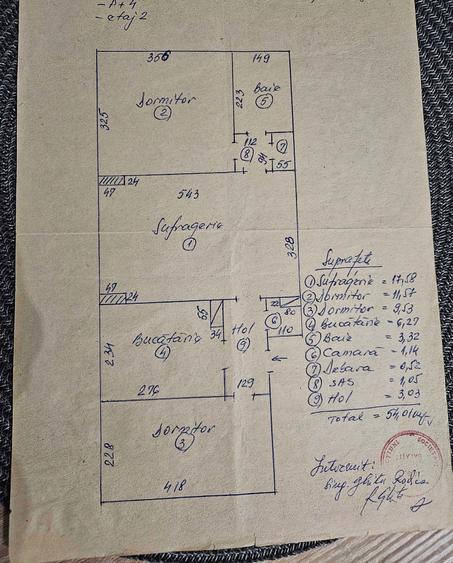 - P+4
- etaj 2
356
149
Dormitor
2
Baie
5
223
325
112
8
7
94
55
24
47
543
Sufragerie
1
328
47
24
55
34
22
80
6
110
Bucătărie
4
Hol
9
234
276
129
Dormitor
3
228
418
Suprafețe
1 Sufragerie = 17,58
2 Dormitor = 11,57
3 Dormitor = 9,53
4 Bucătărie = 6,27
5 Baie = 3,32
6 Camara = 1,14
7 Debara = 0,52
8 SAS = 1,05
9 Hol = 3,03
Total = 54,01 mp
Întocmit:
ing.